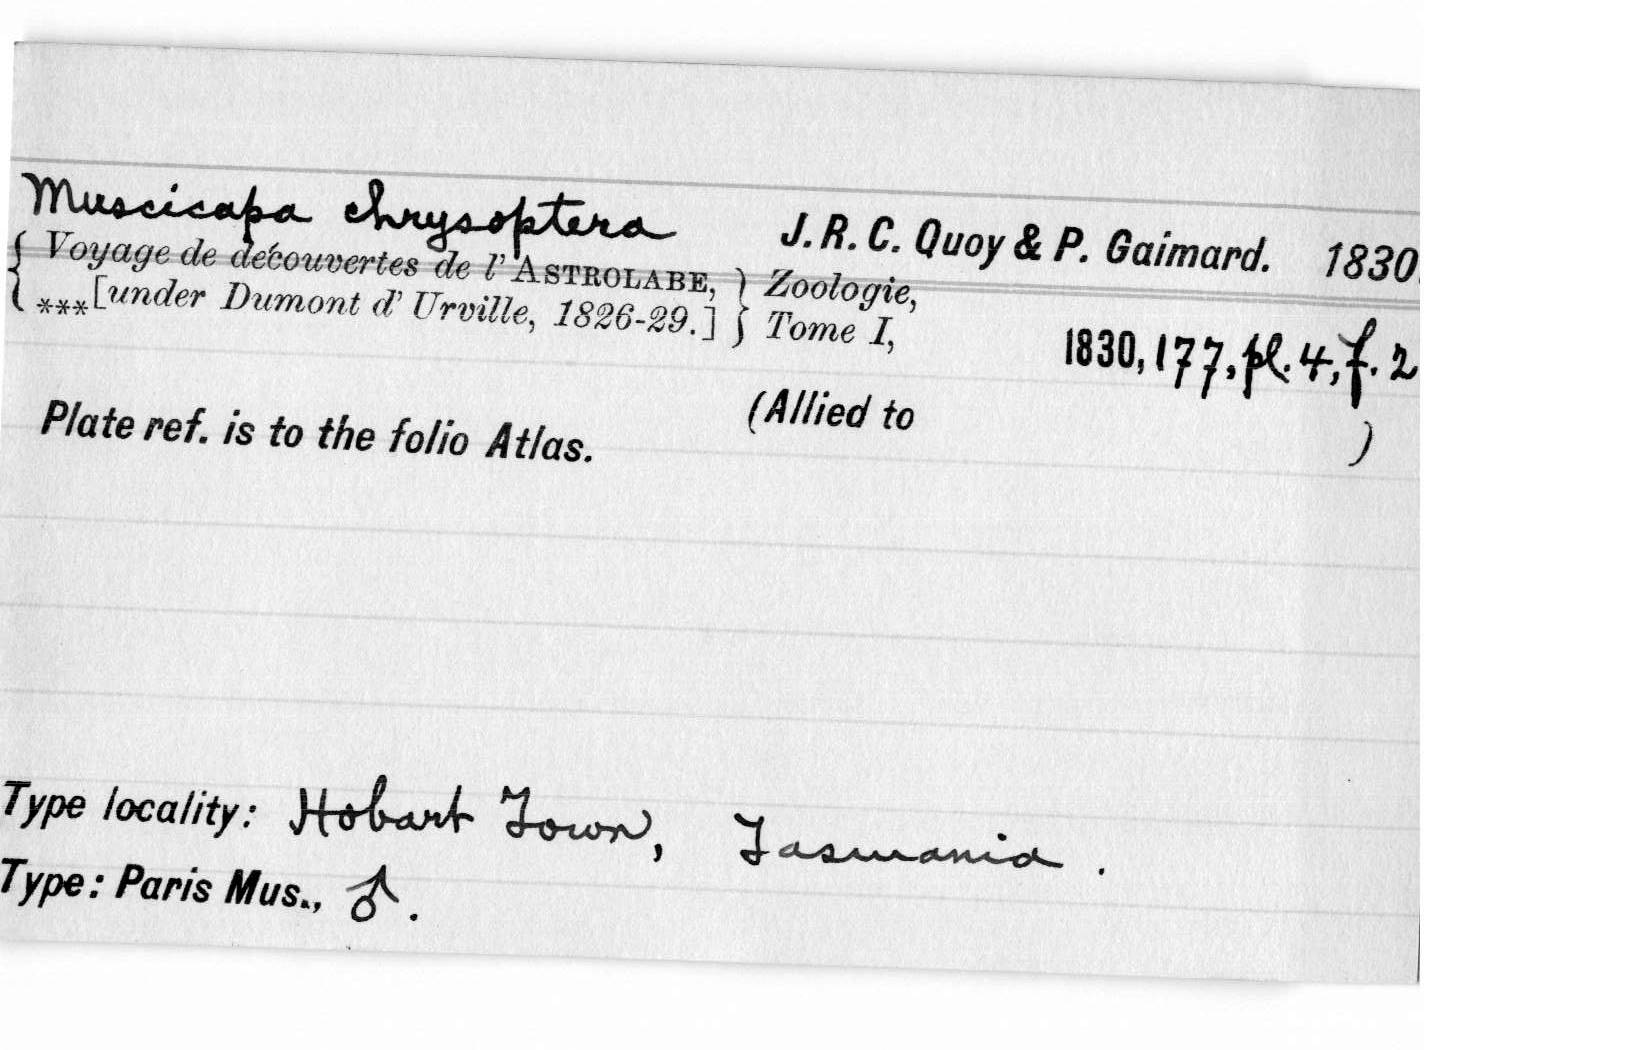 Muscicapa chrysoptera J. R. C. Quoy & P. Gaimard. 1830.
{ Voyage de découvertes de l' ASTROLABE, } Zoologie,
{ ***[under Dumont d' Urville, 1826-29.] } Tome I,
1830, 177, pl. 4, f. 2
Plate ref. is to the folio Atlas. (Allied to )
Type locality: Hobart Town, Tasmania.
Type: Paris Mus., ♂.